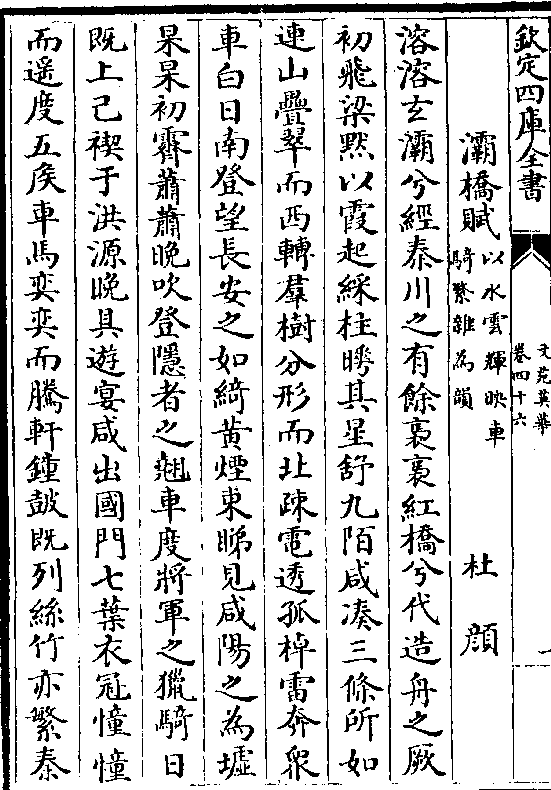 欽定四庫全書
文苑英華
卷四十六
一
灞橋賦
以水雲輝映車
騎繁雜為韻
杜顔
溶溶玄灞兮經秦川之有餘裊裊紅橋兮代造舟之厥
初飛梁黙以霞起綵柱曄其星舒九陌咸凑三條所如
連山疊翠而西轉羣樹分形而北疎電透孤棹雷奔衆
車白日南登望長安之如綺黄煙東睇見咸陽之為墟
杲杲初霽蕭蕭晚吹登隱者之翹車度將軍之獵騎日
既上巳禊于洪源晚具遊宴咸出國門七葉衣冠憧憧
而遥度五侯車馬奕奕而騰軒鐘鼓既列絲竹亦繁秦